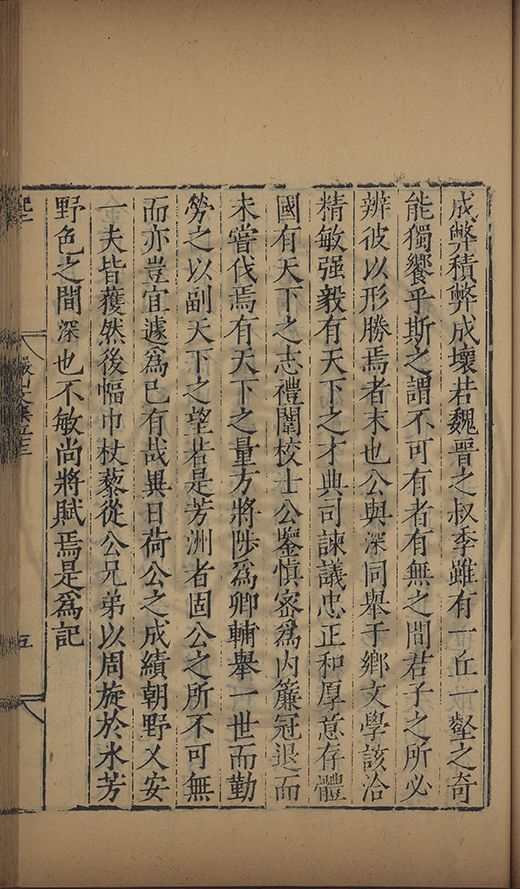 成弊積弊成壞若魏晉之叔季雖有一丘一壑之奇
能獨饗乎斯之謂不可有者有無之間君子之所必
辨彼以形勝焉者末也公與深同舉于鄉文學該洽
精敏强毅有天下之才典司諫議忠正和厚意存體
國有天下之志禮闈校士公鑒慎密爲內簾冠退而
未嘗伐焉有天下之量方將陟爲卿輔舉一世而勤
勞之以副天下之望若是芳洲者固公之所不可無
而亦豈宜遽爲已有哉異日荷公之成績朝野乂安
一夫皆穫然後幅巾杖藜從公兄弟以周旋於水芳
野色之間深也不敏尚將賦焉是爲記
五